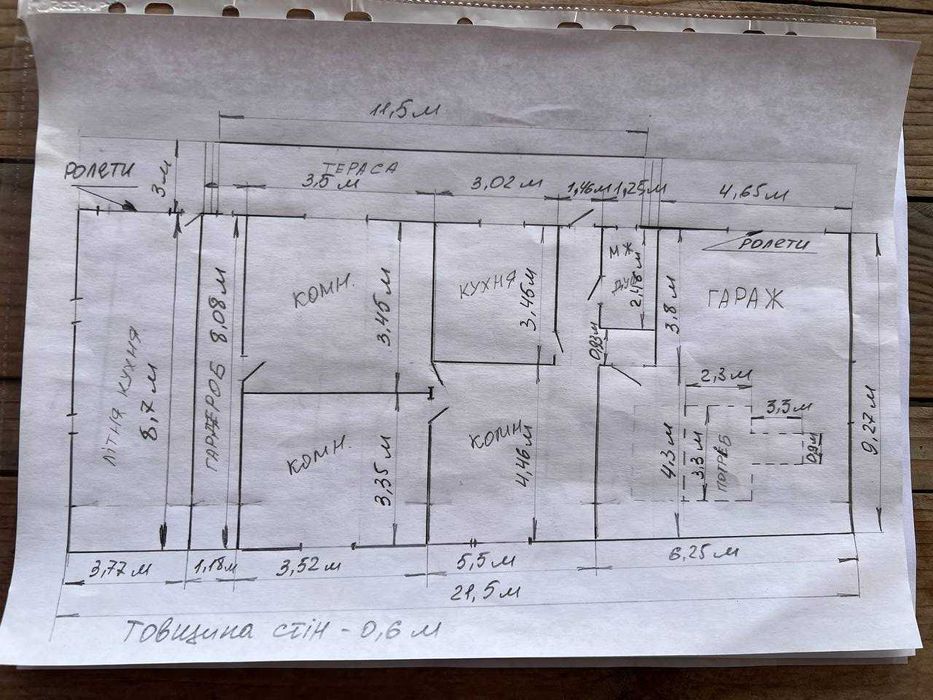 11,5 м
РОЛЕТИ
3 м
ТЕРАСА
3,5 м
3,02 м
1,46 м
1,25 м
4,65 м
РОЛЕТИ
КОМН.
3,45 м
КУХНЯ
3,45 м
МЖ
ДУШ
2,48 м
3,8 м
ГАРАЖ
0,93 м
ЛІТНЯ КУХНЯ
8,7 м
ГАРДЕРОБ 8,08 м
2,3 м
3,3 м
КОМН.
3,35 м
КОМН.
4,46 м
4,3 м
3,3 м
ПОГРЕБ
0,9 м
9,27 м
3,77 м
1,18 м
3,52 м
5,5 м
6,25 м
21,5 м
ТОВЩИНА СТІН - 0,6 м